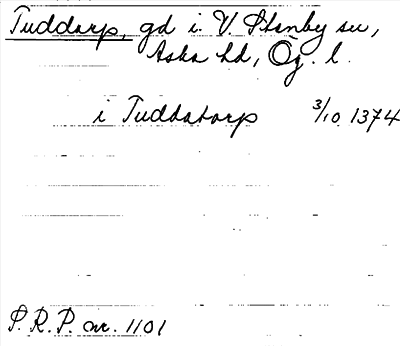 Tuddarp, gd i V. Stenby sn,
Aska hd, Ög. l.
i Tuddatorp 3/10 1374
P.R.P. nr. 1101